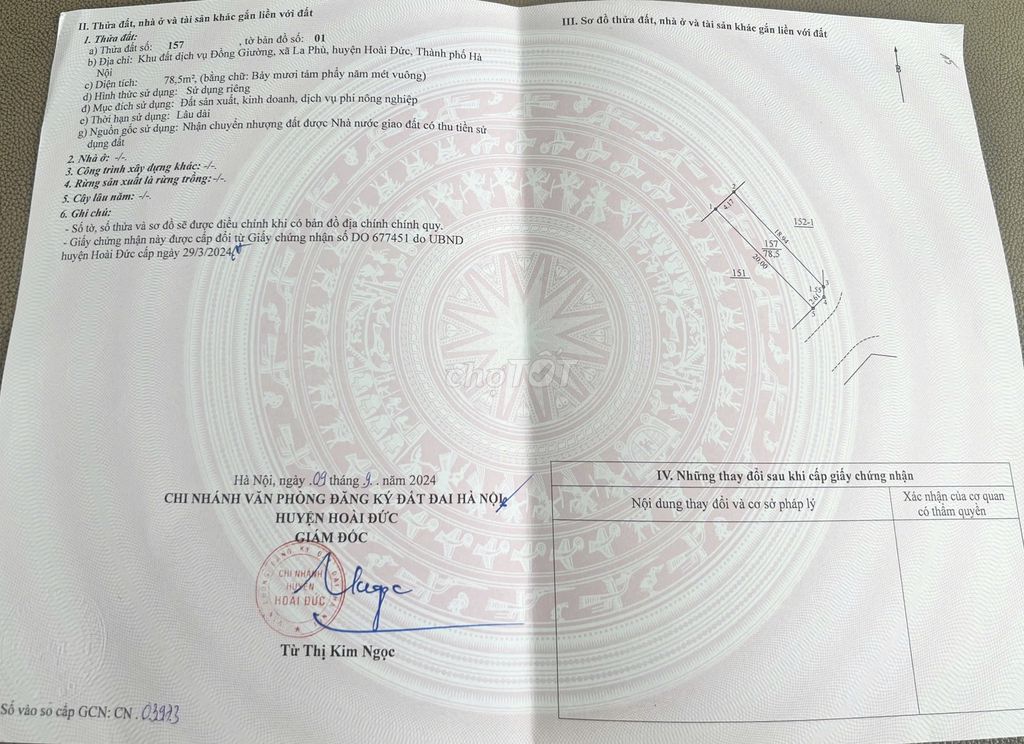 II. Thửa đất, nhà ở và tài sản khác gắn liền với đất
1. Thửa đất:
a) Thửa đất số: 157 , tờ bản đồ số: 01
b) Địa chỉ: Khu đất dịch vụ Đồng Giường, xã La Phù, huyện Hoài Đức, Thành phố Hà
Nội
c) Diện tích: 78,5m², (bằng chữ: Bảy mươi tám phẩy năm mét vuông)
d) Hình thức sử dụng: Sử dụng riêng
đ) Mục đích sử dụng: Đất sản xuất, kinh doanh, dịch vụ phi nông nghiệp
e) Thời hạn sử dụng: Lâu dài
g) Nguồn gốc sử dụng: Nhận chuyển nhượng đất được Nhà nước giao đất có thu tiền sử
dụng đất
2. Nhà ở: -/-.
3. Công trình xây dựng khác: -/-.
4. Rừng sản xuất là rừng trồng: -/-.
5. Cây lâu năm: -/-.
6. Ghi chú:
- Số tờ, số thửa và sơ đồ sẽ được điều chỉnh khi có bản đồ địa chính chính quy.
- Giấy chứng nhận này được cấp đổi từ Giấy chứng nhận số DO 677451 do UBND
huyện Hoài Đức cấp ngày 29/3/2024
Hà Nội, ngày 09 tháng 9 . năm 2024
CHI NHÁNH VĂN PHÒNG ĐĂNG KÝ ĐẤT ĐAI HÀ NỘI
HUYỆN HOÀI ĐỨC
GIÁM ĐỐC
CHI NHÁNH
HUYỆN
HOÀI ĐỨC
Ngọc
Từ Thị Kim Ngọc
Số vào sổ cấp GCN: CN . 03973
III. Sơ đồ thửa đất, nhà ở và tài sản khác gắn liền với đất
B
15
2
1
4.17
152-1
18.94
157
78.5
20.00
151
3
1.55
4
2.61
5
chợTỐT
IV. Những thay đổi sau khi cấp giấy chứng nhận
Nội dung thay đổi và cơ sở pháp lý
Xác nhận của cơ quan
có thẩm quyền